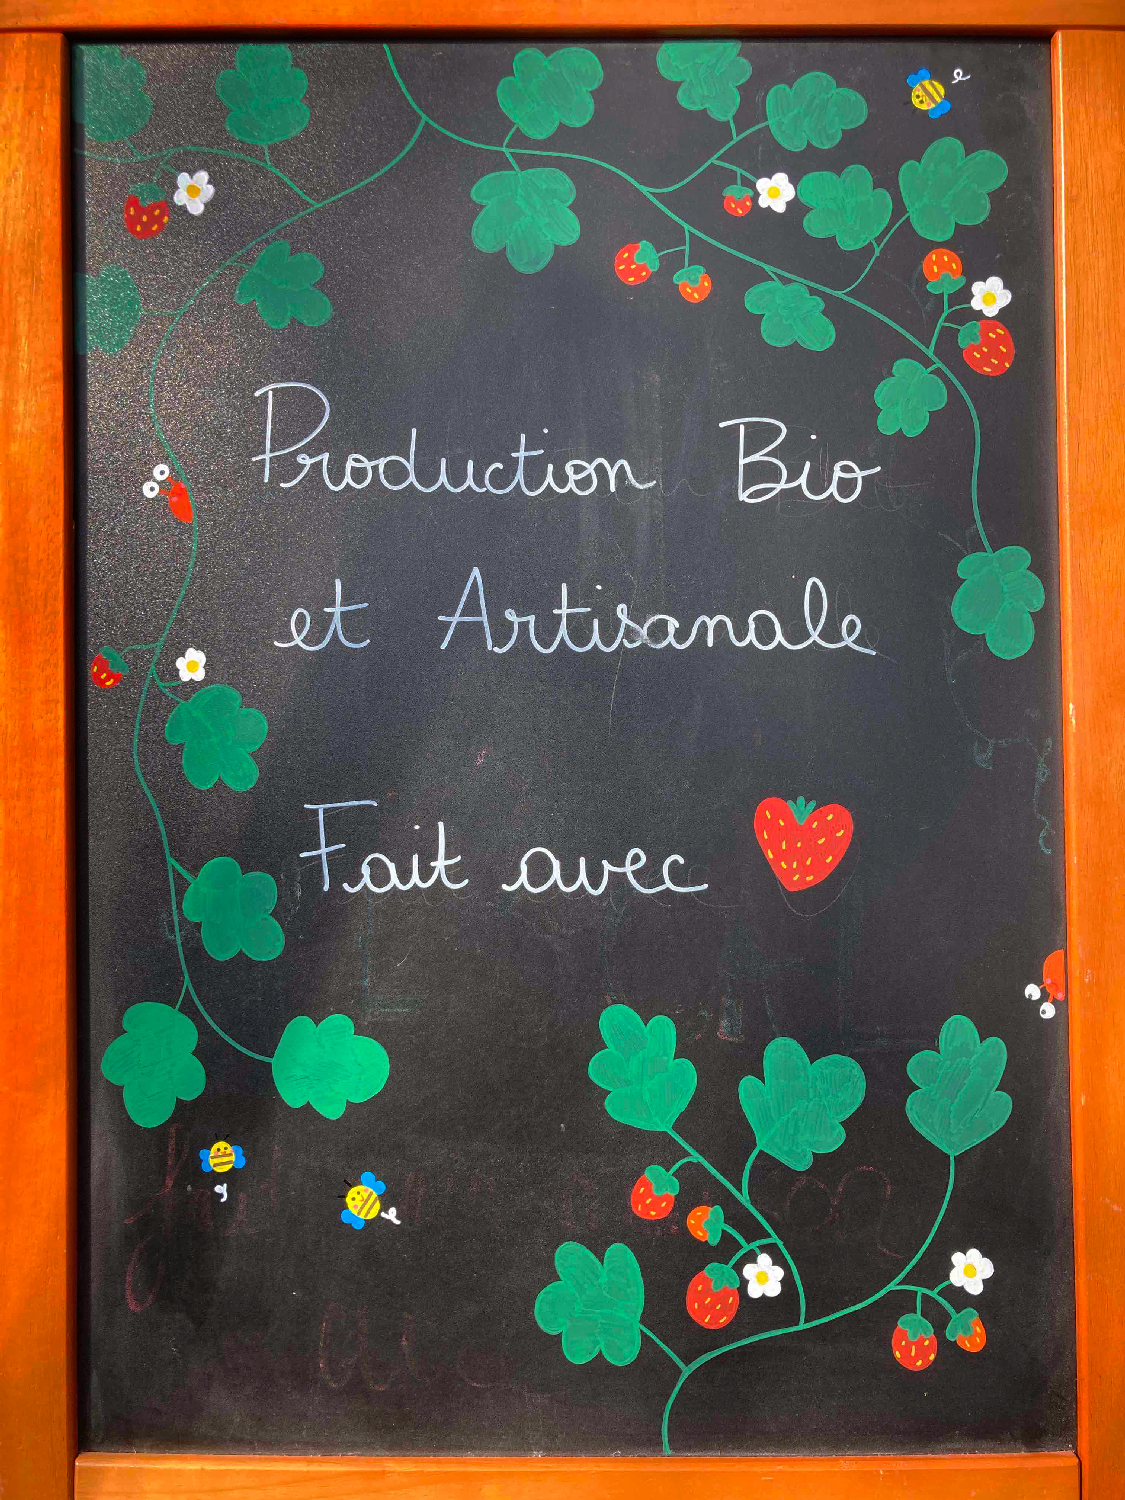 Production Bio
et Artisanale
Fait avec